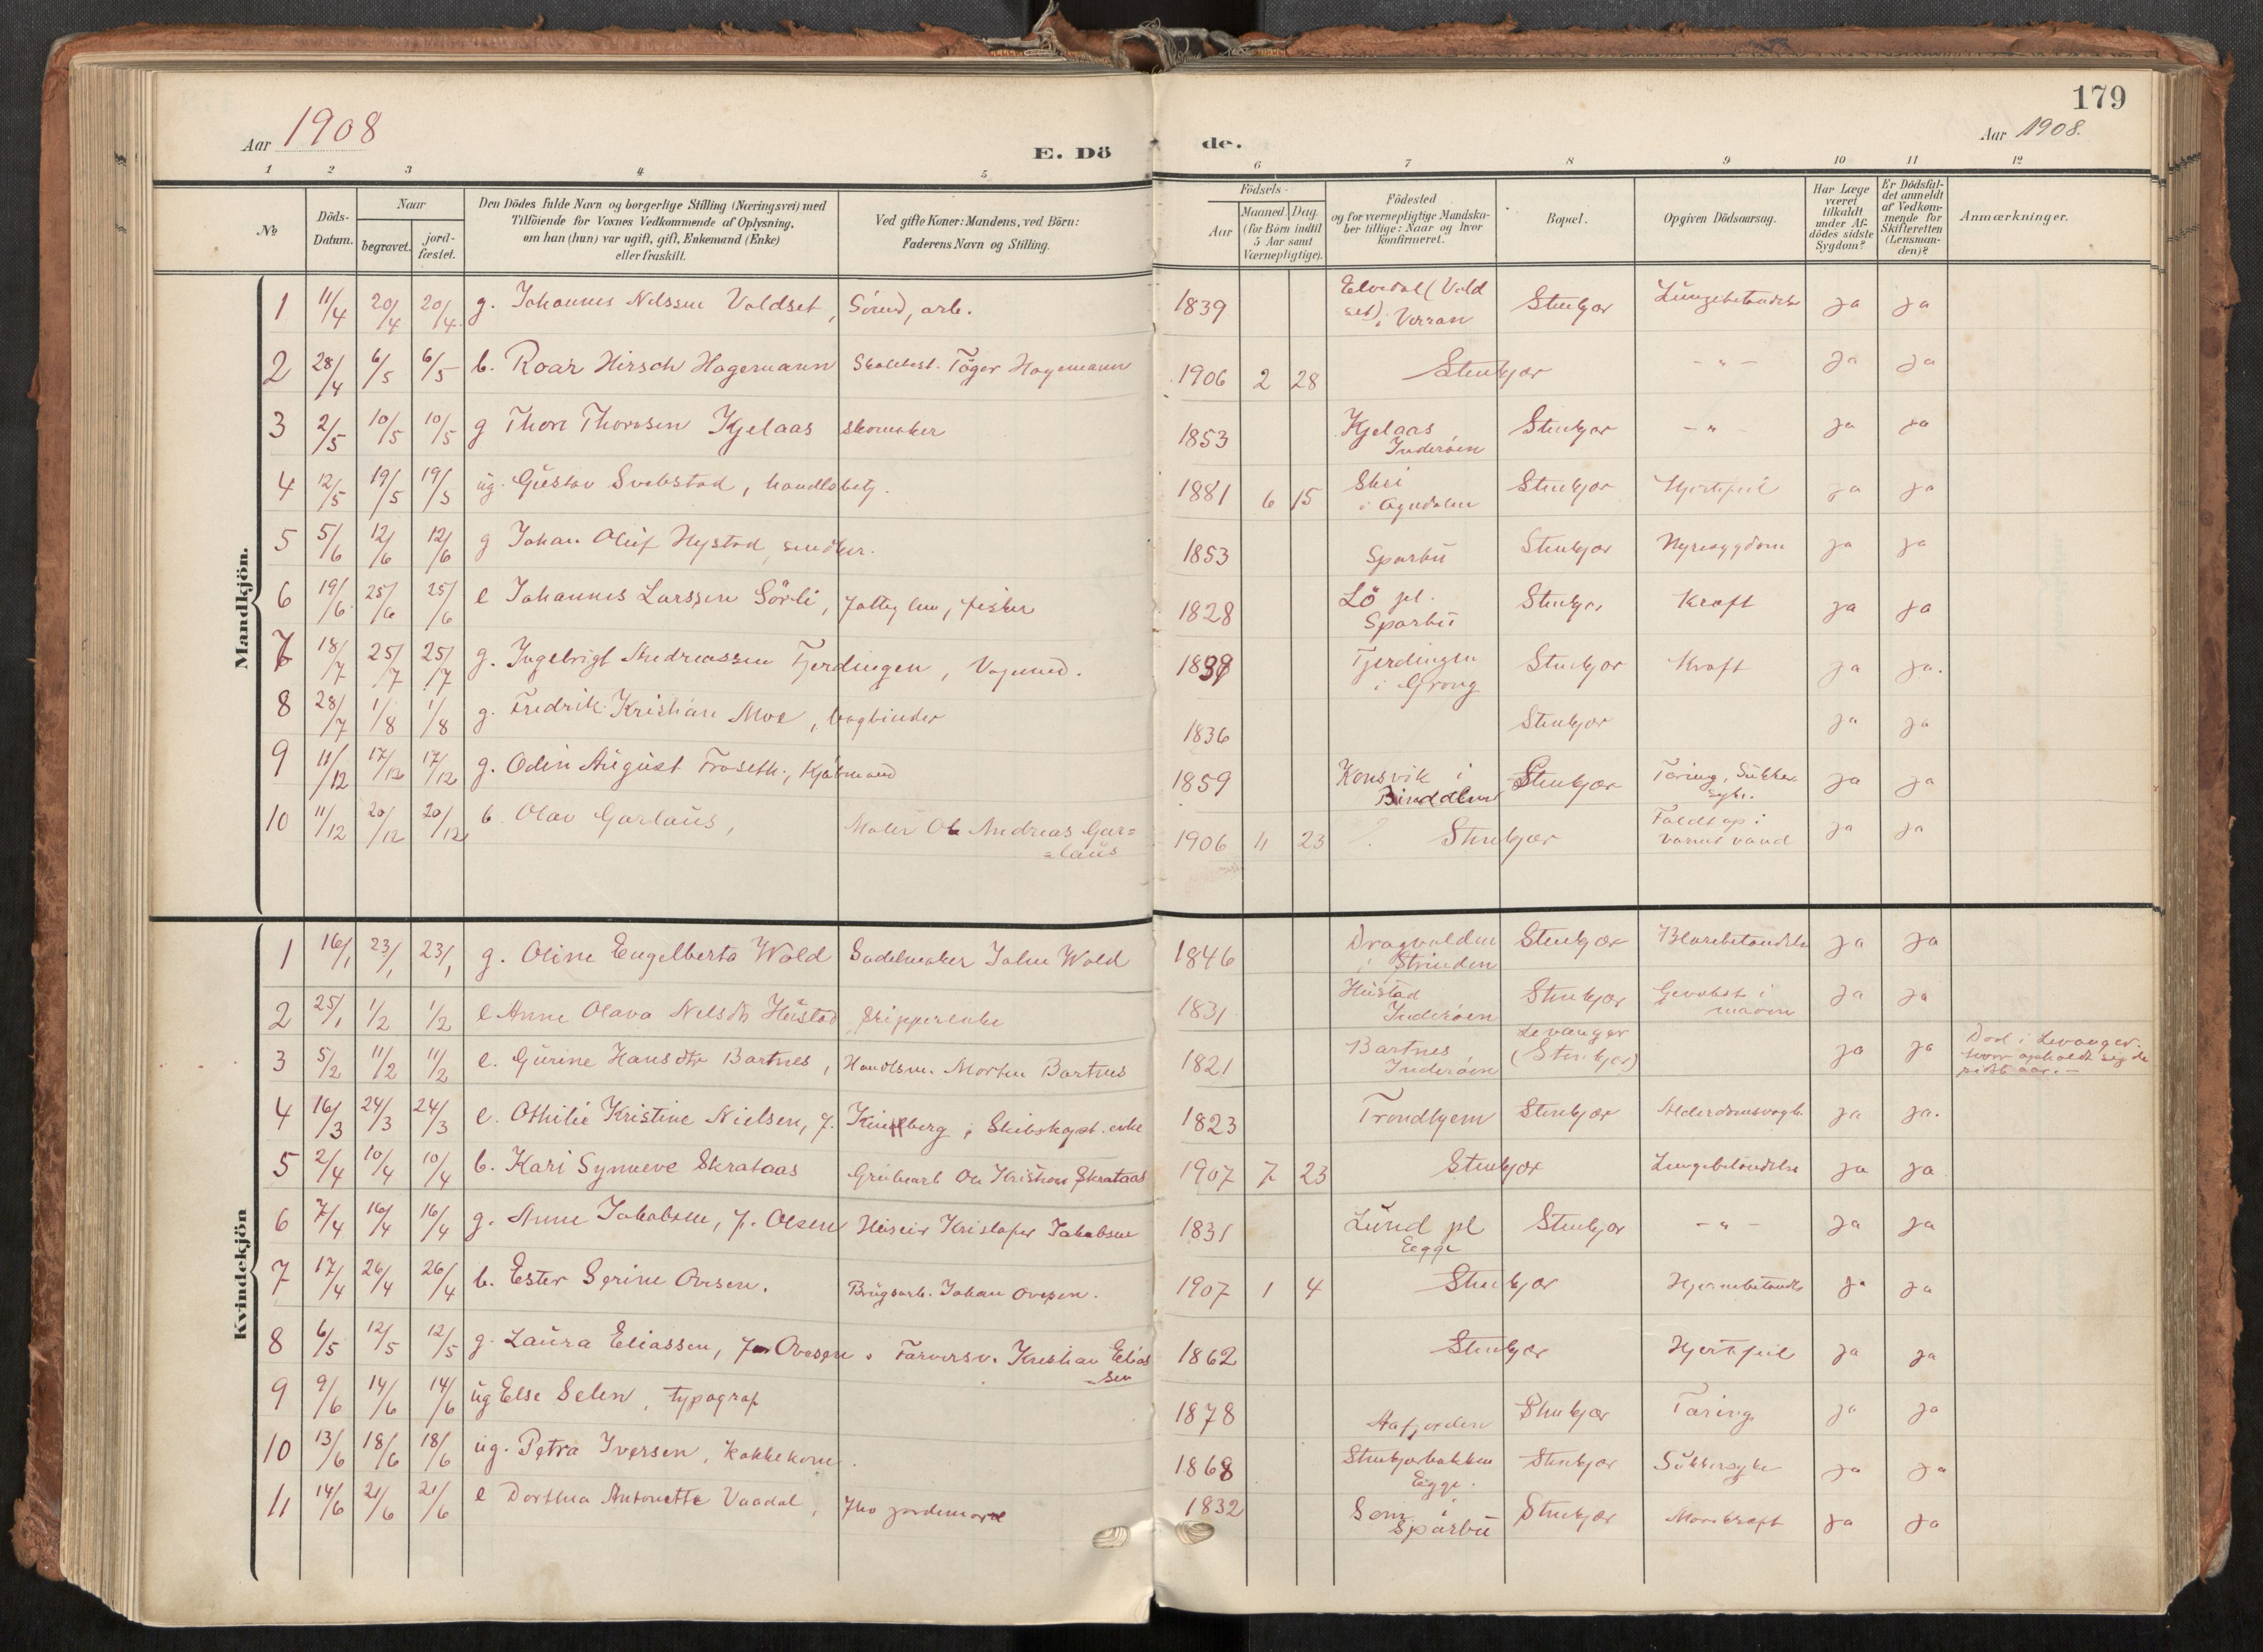 179
Aar 1908
Aar 1908.
E. Dö
de.
1 2 3 4 5 6 7 8 9 10 11 12
№
Döds-
Datum.
Naar
begravet.
jord-
fæstet.
Den Dödes fulde Navn og borgerlige Stilling (Næringsvei) med
Tilföiende for Voxnes Vedkommende af Oplysning,
om han (hun) var ugift, gift, Enkemand (Enke)
eller fraskilt.
Ved gifte Koner: Mandens, ved Börn:
Faderens Navn og Stilling.
Födsels-
Aar
Maaned. Dag.
(for Börn indtil
5 Aar samt
Værnepligtige).
Födested
og for værnepligtige Mandska-
ber tillige: Naar og hvor
konfirmeret.
Bopæl.
Opgiven Dödsaarsag.
Har Læge
været
tilkaldt
under Af-
dödes sidste
Sygdom?
Er Dödsfal-
det anmeldt
af Vedkom-
mende for
Skifteretten
(Lensman-
den)?
Anmærkninger.
Mandkjön.
1 11/4 20/4 20/4 g. Johannes Nilssen Valdset, arb. 1839 Elvedal (Vald
set) i Verran Stenkjær Lungebetændelse ja ja
2 28/4 6/5 6/5 b. Roar Hirsch Hagemann Töger Hagemann 1906 2 28 Stenkjær - " - ja ja
3 2/5 10/5 10/5 g Thore Thoresen Kjelaas skomaker 1853 Kjelaas
Inderöen Stenkjær - " - ja ja
4 12/5 19/5 19/5 ug. Gustav Svebstad, handlsbetj. 1881 6 15 Skei
i Ogndalen Stenkjær Hjertefeil ja ja
5 5/6 12/6 12/6 g Johan Oluf Hystad, snedker. 1853 Sparbu Stenkjær Nyresygdom ja ja
6 19/6 25/6 25/6 e Johannes Larssen Sörli, fattiglem, fisker 1828 Lö pl.
Sparbu Stenkjær Kræft ja ja
7 18/7 25/7 25/7 g. Ingebrigt Andreassen Fjerdingen, Vognmd. 1839 Fjerdingen
i Grong Stenkjær Kræft ja ja.
8 28/7 1/8 1/8 g. Fredrik Kristian Moe, bogbinder 1836 Stenkjær ja ja
9 11/12 17/12 17/12 g. Odin August Fraseth, Kjöbmand 1859 Konsvik i
Binddalen Stenkjær Tæring, Sukker
syke. ja ja
10 11/12 20/12 20/12 b Olav Garlaus, Maler Ole Andreas Gar=
=laus 1906 11 23 Stenkjær Faldt op i
varmt vand ja ja
Kvindekjön
1 16/1 23/1 23/1 g. Oline Engelberta Wold Sadelmaker John Wold 1846 Dragvolden
i Strinden Stenkjær Blærebetændelse ja ja
2 25/1 1/2 1/2 e Anne Olava Nelsdtr Hustad skipperenke 1831 Hustad
Inderöen Stenkjær Gevækst i
maven ja ja
3 5/2 11/2 11/2 e. Gurine Hansdtr Bartnes, Handlsm. Morten Bartnes 1821 Bartnes
Inderöen Levanger
(Stenkjær) ja ja Död i Levanger.
hvor opholdt sig de
sidste aar. –
4 16/3 24/3 24/3 e. Othilie Kristine Nielsen, f. Skibskapt. enke 1823 Trondhjem Stenkjær Alderdomssvagh. ja ja.
5 2/4 10/4 10/4 b. Kari Synneve Skrataas Grubearb Ole Kristian Skrataas 1907 7 23 Stenkjær Lungebetændelse ja ja
6 7/4 16/4 16/4 g. Anne Jakobsen, f. Olsen Huseier Kristofer Jakobsen 1831 Lund pl
Egge Stenkjær - " - ja ja
7 17/4 26/4 26/4 b. Ester Serine Ovesen. Brugsarb. Johan Ovesen. 1907 1 4 Stenkjær Hjernebetændls ja ja
8 6/5 12/5 12/5 g. Laura Eliassen, f. Ovesen. Farversv. Kristian Elias
=sen 1862 Stenkjær Hjertefeil ja ja
9 9/6 14/6 14/6 ug Else Selen, typograf 1878 Aafjorden Stenkjær Tæring ja ja
10 13/6 18/6 18/6 ug. Petra Iversen, Kokkekone. 1868 Stenkjærbakken
Egge. Stenkjær Sukkersyke ja ja
11 14/6 21/6 21/6 e Dorthea Antonette Vaadal, jordemor 1832 Sem i
Sparbu Stenkjær Mavekræft ja ja